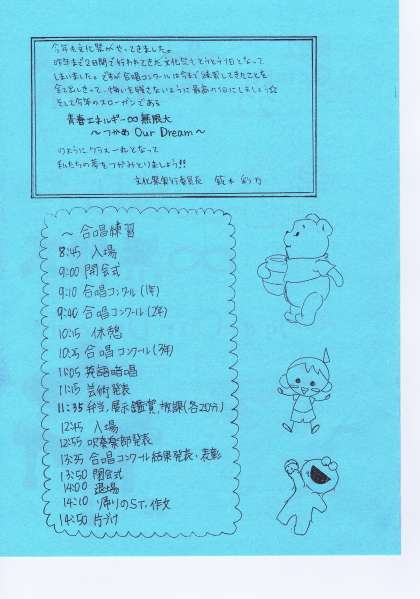 今年も文化祭がやってきました。
昨年まで2日間で行われてきた文化祭もとうとう1日となって
しまいました。ですが合唱コンクールは今まで練習してきたことを
全て出しきって、悔いを残さないように最高の1日にしましょう☆
そして今年のスローガンである
青春エネルギー∞無限大
〜つかめ Our Dream〜
のようにクラス一丸となって
私たちの夢をつかみとりましょう!!
文化祭実行委員長
〜合唱練習
8:45 入場
9:00 開会式
9:10 合唱コンクール(1年)
9:40 合唱コンクール(2年)
10:15 休憩
10:25 合唱コンクール(3年)
11:05 英語暗唱
11:15 芸術発表
11:35 弁当、展示鑑賞、放課(各20分)
12:45 入場
12:55 吹奏楽部発表
13:35 合唱コンクール結果発表、表彰
13:50 閉会式
14:00 退場
14:10 帰りのST、作文
14:50 片づけ